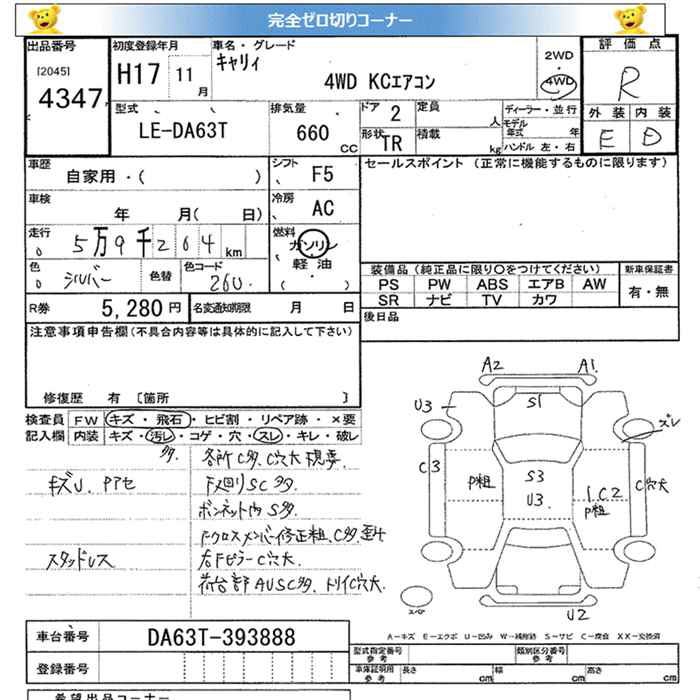 完全ゼロ切りコーナー
出品番号
[2045]
4347
初度登録年月
H17 11 月
車名・グレード
キャリィ
4WD KCエアコン
2WD
・
4WD
評価点
R
型式
LE-DA63T
排気量
660 CC
ドア 2
定員 人
形状 TR
積載 kg
ディーラー・並行
モデル
年式 年
ハンドル 左・右
外装 内装
E D
車歴
自家用・( )
シフト F5
セールスポイント (正常に機能するものに限ります)
車検
年 月( 日)
冷房 AC
走行
5万9千264 km
燃料
ガソリン
・
軽油
( )
色
シルバー
色替
色コード
26U
装備品 (純正品に限り〇をつけてください)
PS PW ABS エアB AW
SR ナビ TV カワ
新車保証書
有・無
R券 5,280円
名変通知期限 月 日
後日品
注意事項申告欄(不具合内容等は具体的に記入して下さい)
修復歴 有 [箇所 ]
検査員
記入欄
FW キズ・飛石・ヒビ割・リペア跡・×要
内装 キズ・汚レ・コゲ・穴・スレ・キレ・破レ
多
各所C多、C穴大現車
キズU、Pアセ
下廻りSC多
ボンネット内S多
FクロスメンバーC修正粗、C多
スタッドレス
右FピラーC穴大
荷台部AUSC多、トリイC穴大
A2 A1
U3
S1
ズレ
C3
P粗
S3
U3
C2
P粗
C穴大
スペア
U2
A-キズ E-エクボ U-凹み W-補修跡 S-サビ C-腐食 XX-交換済
車台番号 DA63T-393888
登録番号
型式指定番号
参考
類別区分番号
参考
車庫証明用
参考
長さ cm
幅 cm
高さ cm
希望出品コーナー